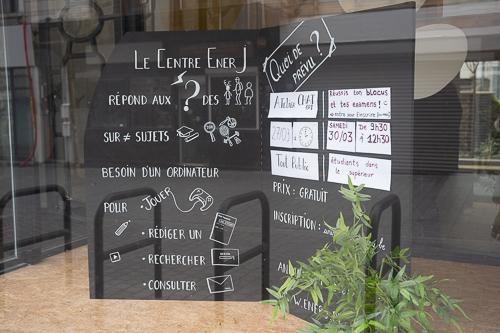 LE CENTRE ENER J
RÉPOND AUX ? DES
SUR ≠ SUJETS
BESOIN D'UN ORDINATEUR
POUR • JOUER
• RÉDIGER UN
• RECHERCHER
• CONSULTER
QUOI DE PRÉVU ?
ATELIER CHAT
27/03
Tout Public
Réussis ton blocus
et tes examens !
SAMEDI 30/03
De 9h30 à 12h30
étudiants dans
le supérieur
PRIX : GRATUIT
INSCRIPTION :